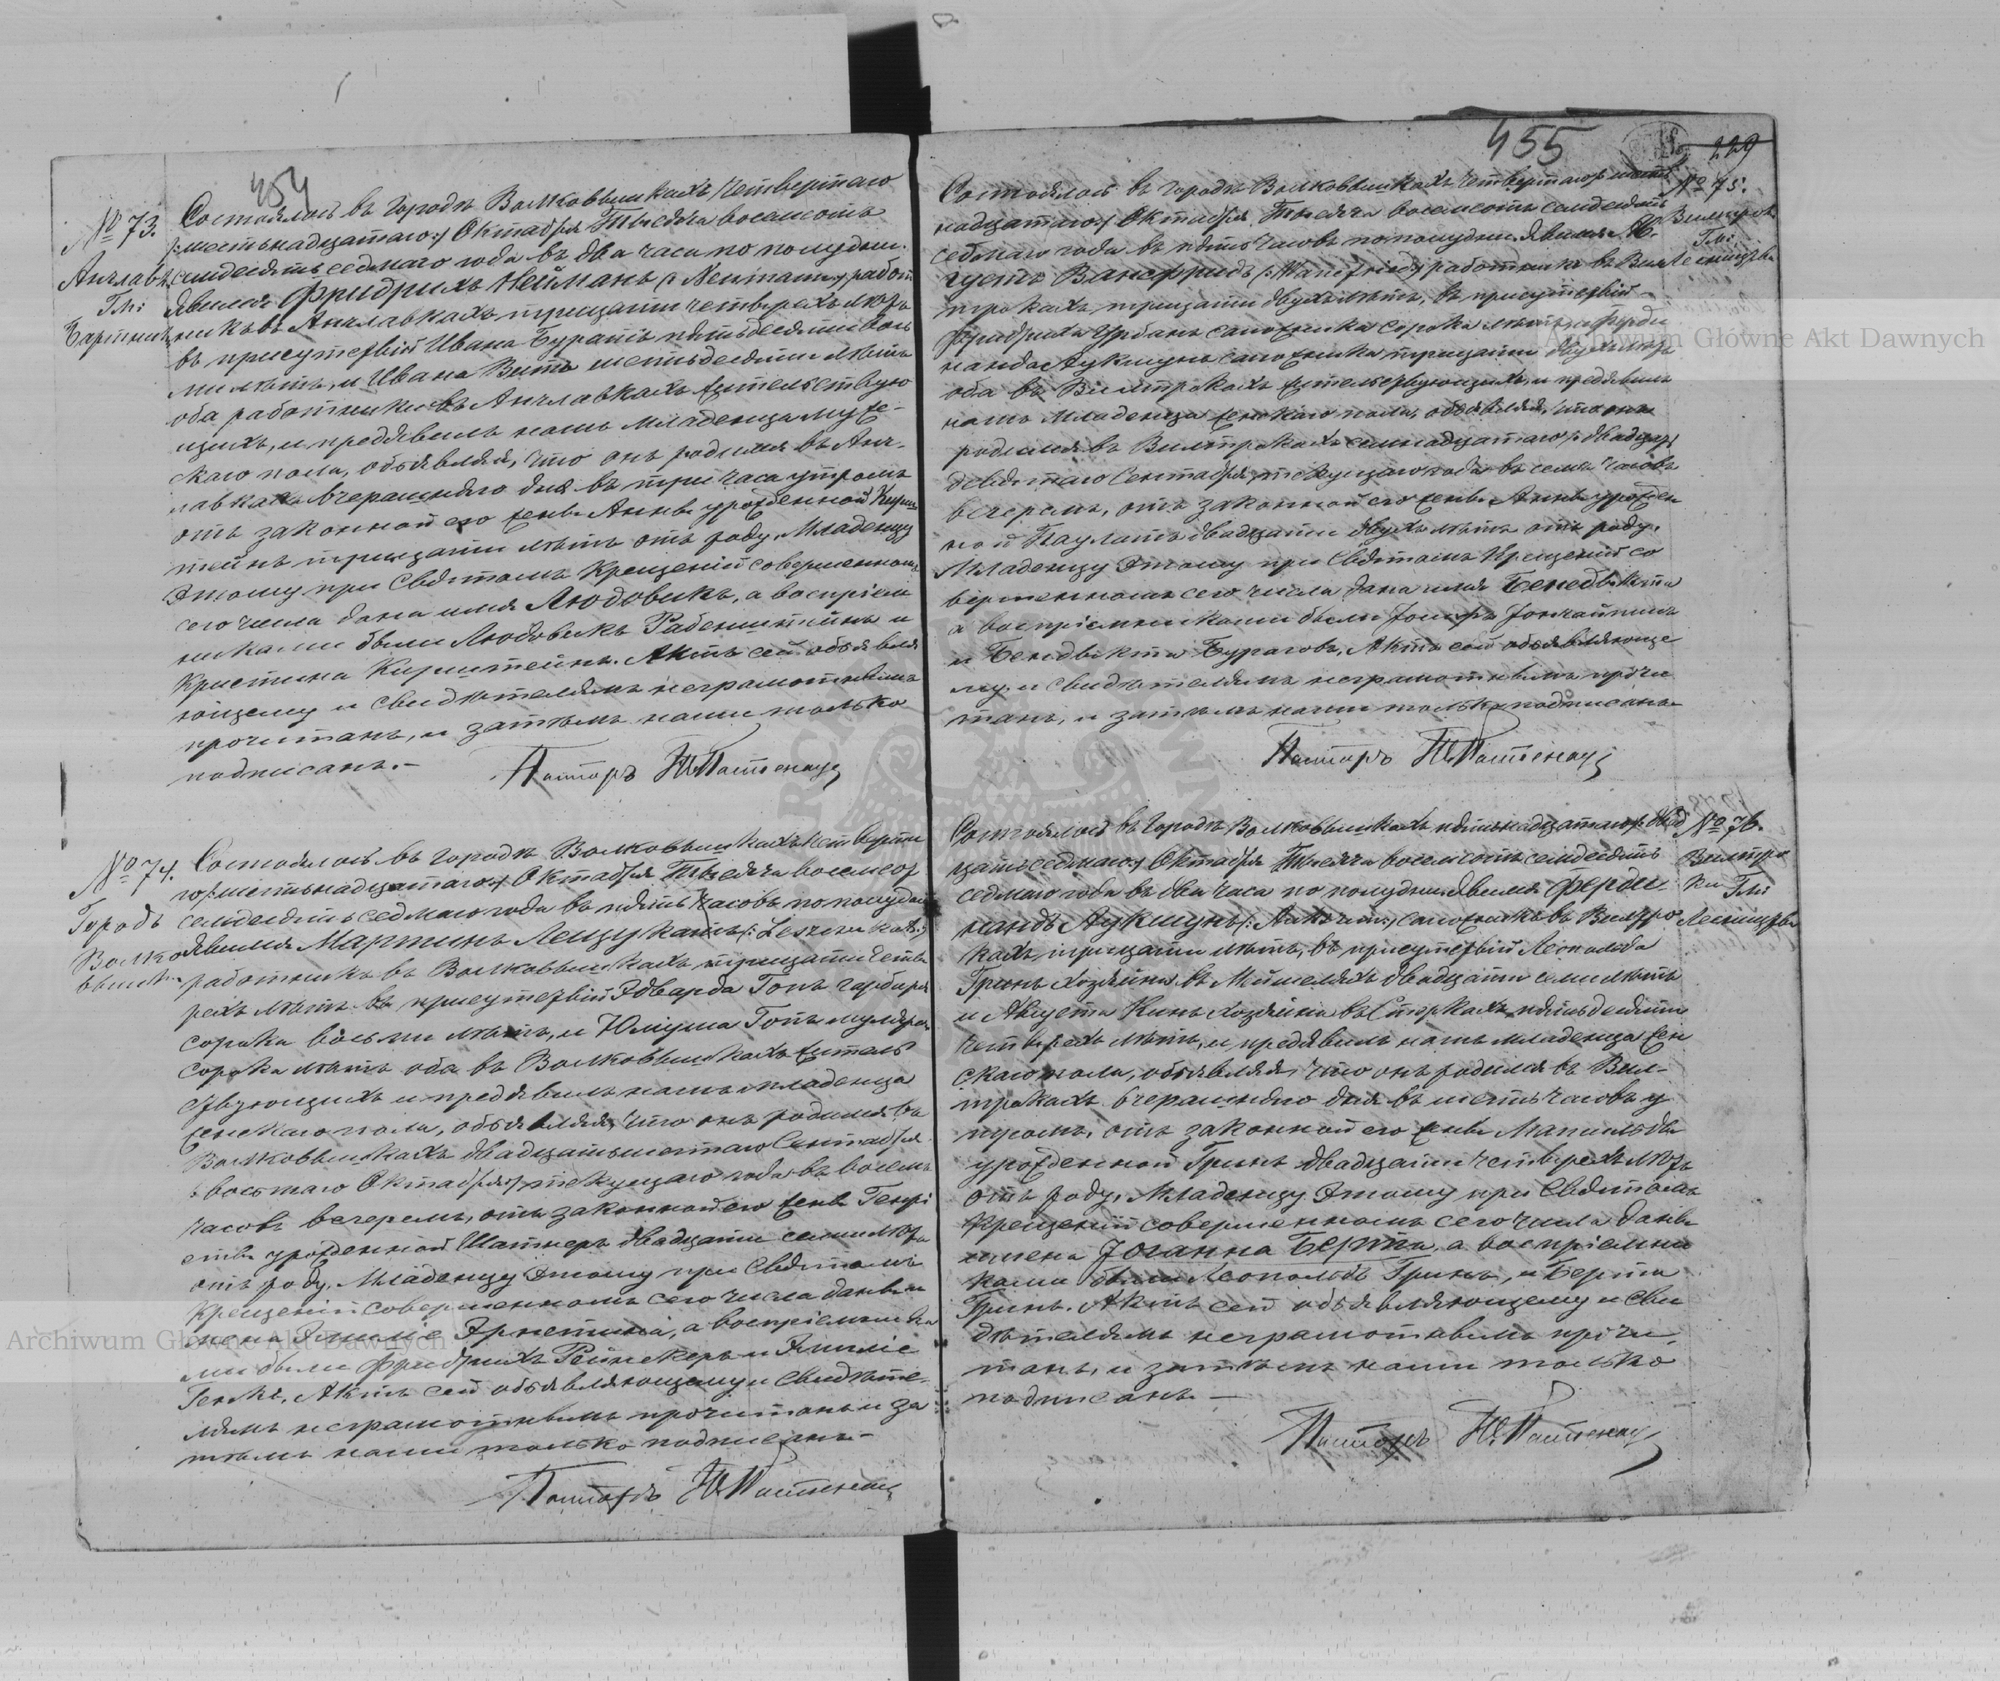 454
№ 73.
Анчлавк.
Гм:
Состоялось въ городѣ Волковышкахъ четвертаго
/:шестьнадцатаго:/ Октября Тысяча восемьсотъ
семьдесятъ седьмаго года въ два часа по полудни.
Явился Фридрихъ Нейманъ /: Neumann:/ работ
никъ въ Анчлавкахъ тридцати четырехъ лѣтъ
въ присутствіи Ивана пятьдесяти вось
ми лѣтъ, и Ивана Витъ шестьдесяти лѣтъ
оба работники въ Анчлавкахъ жительствую
щихъ, и предъявилъ намъ младенца муже-
скаго пола, объявляя, что онъ родился въ Анч-
лавкахъ вчерашняго дня въ три часа утромъ
отъ законной его жены Анны урожденной Кирш
тейнъ тридцати лѣтъ отъ роду. Младенцу
этому при Святомъ Крещеніи совершенномъ
сего числа дано имя Людовикъ, а воспріем
никами были Людовикъ Рабенштейнъ и
Кристина Кирштейнъ. Актъ сей объявля
ющему и свидѣтелямъ неграмотнымъ
прочитанъ, и затѣмъ нами только
подписанъ.-
Пасторъ
№ 74.
Городъ
Волко
вышки.
Состоялось въ городѣ Волковышкахъ четверта
го /:шестьнадцатаго:/ Октября Тысяча восемсот
семьдесятъ седьмаго года въ пять часовъ по полудни
Явился Мартинъ Лещукатъ /: Leszczukat:/
работникъ въ Волковышкахъ тридцати четы
рехъ лѣтъ въ присутствіи Эдварда Гопъ гарбаря
сорока восьми лѣтъ, и Юліуша Гопъ муляра
сорока лѣтъ оба въ Волковышкахъ житель
ствующихъ и предъявилъ намъ младенца
женскаго пола, объявляя, что онъ родился въ
Волковышкахъ двадцать шестаго Сентября
/:восьмаго Октября:/ текущаго года въ восемь
часовъ вечеромъ, отъ законной его жены Генрі
етты урожденной Шатнеръ двадцати семи лѣтъ
отъ роду. Младенцу этому при Святомъ
Крещеніи совершенномъ сего числа даны и
мена Эмиліе Эрнестина, а воспріемника
ми были Фридрихъ Рейнскеръ и Эмиліе
Актъ сей объявляющему и свидѣте-
лямъ неграмотнымъ прочитанъ и за
тѣмъ нами только подписанъ.-
Пасторъ
455
229
№ 75.
Гм:
Состоялось въ городѣ Волковышкахъ четвертаго /:шесть
надцатаго:/ Октября Тысяча восемсотъ семьдесятъ
седьмаго года въ пять часовъ по полудни. Явился Ав.
густъ Ванфридъ /: Wanefried:/ работникъ въ Вил
трокахъ, тридцати двухъ лѣтъ, въ присутствіи
Фридриха Урбанъ сапожника сорока лѣтъ, и Ферди
нанда Аукшунъ сапожника тридцати двухъ лѣтъ
оба въ Вилтрокахъ жительствующихъ, и предъявилъ
намъ младенца женскаго пола, объявляя, что онъ
родился въ Вилтрокахъ семнадцатаго /:двадцат
девятаго:/ Сентября текущаго года въ семь часовъ
вечеромъ, отъ законной его жены Анны урожден
ной Паулатъ двадцати двухъ лѣтъ отъ роду.
Младенцу этому при Святомъ Крещеніи со
вершенномъ сего числа дано имя Бенедыкта
а воспріемниками были Іосифъ
и Бенедыкта Актъ сей объявляюще
му и свидѣтелямъ неграмотнымъ прочи
танъ, и затѣмъ нами только подписанъ.
Пасторъ
№ 76.
Вилтро
ки Гм:
Состоялось въ городѣ Волковышкахъ пятьнадцатаго /:двад
цать седьмаго:/ Октября Тысяча восемсотъ семьдесятъ
седьмаго года въ два часа по полудни. Явился Ферди
нандъ Аукшунъ сапожникъ въ Вилтро
кахъ, тридцати лѣтъ, въ присутствіи Леопольда
Гринъ хозяина въ двадцати семи лѣтъ
и Августа Кинъ хозяина въ пятьдесяти
четырехъ лѣтъ, и предъявилъ намъ младенца жен
скаго пола, объявляя, что онъ родился въ Вил-
трокахъ вчерашняго дня въ шесть часовъ у
тромъ, отъ законной его жены Матильды
урожденной Гринъ двадцати четырехъ лѣтъ
отъ роду. Младенцу этому при Святомъ
Крещеніи совершенномъ сего числа даны
имена Іоганна Берта, а воспріемни
ками были Леопольдъ Гринъ, и Берта
Гринъ. Актъ сей объявляющему и сви
дѣтелямъ неграмотнымъ прочи
танъ, и затѣмъ нами только
подписанъ.-
Пасторъ
Archiwum Główne Akt Dawnych
Archiwum Główne Akt Dawnych